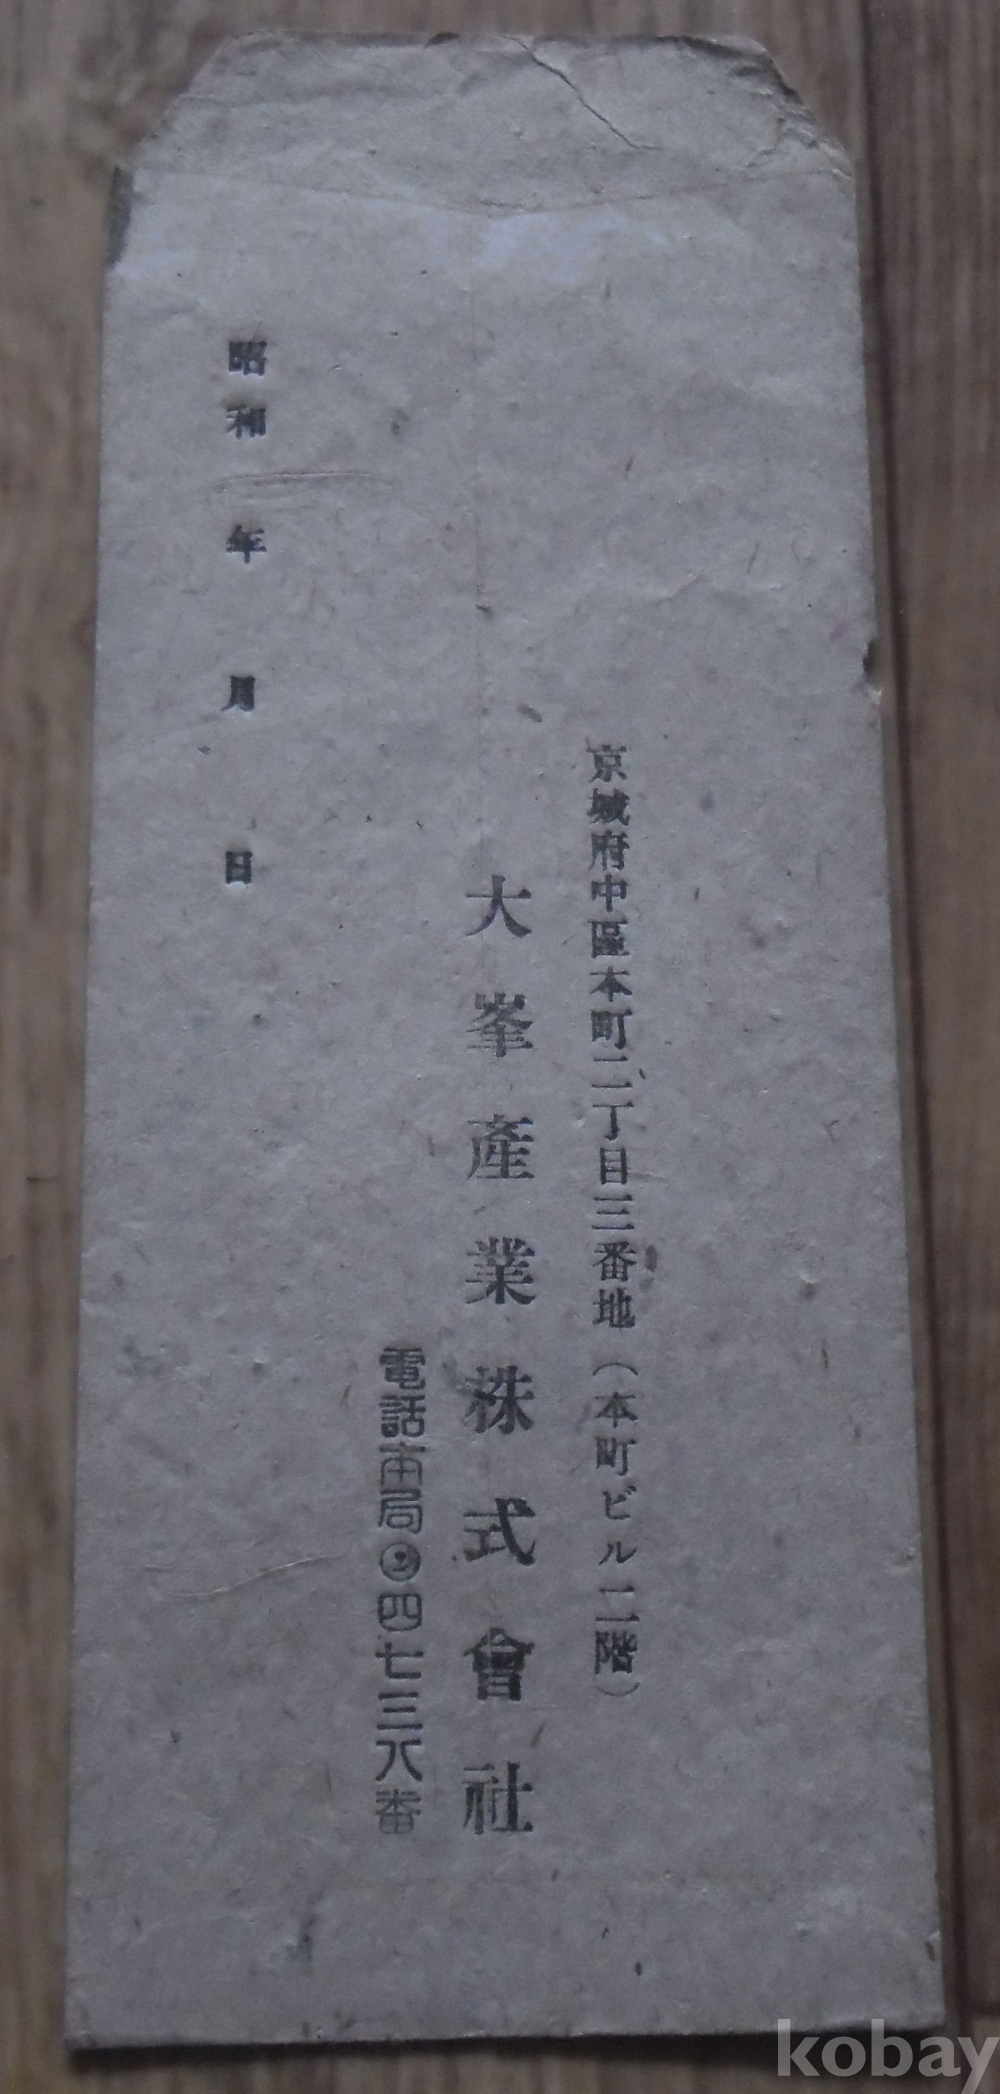 京城府中區本町二丁目三番地（本町ビル二階）
大峯產業株式會社
電話本局②四七三八番
昭和　年　月　日
kobay